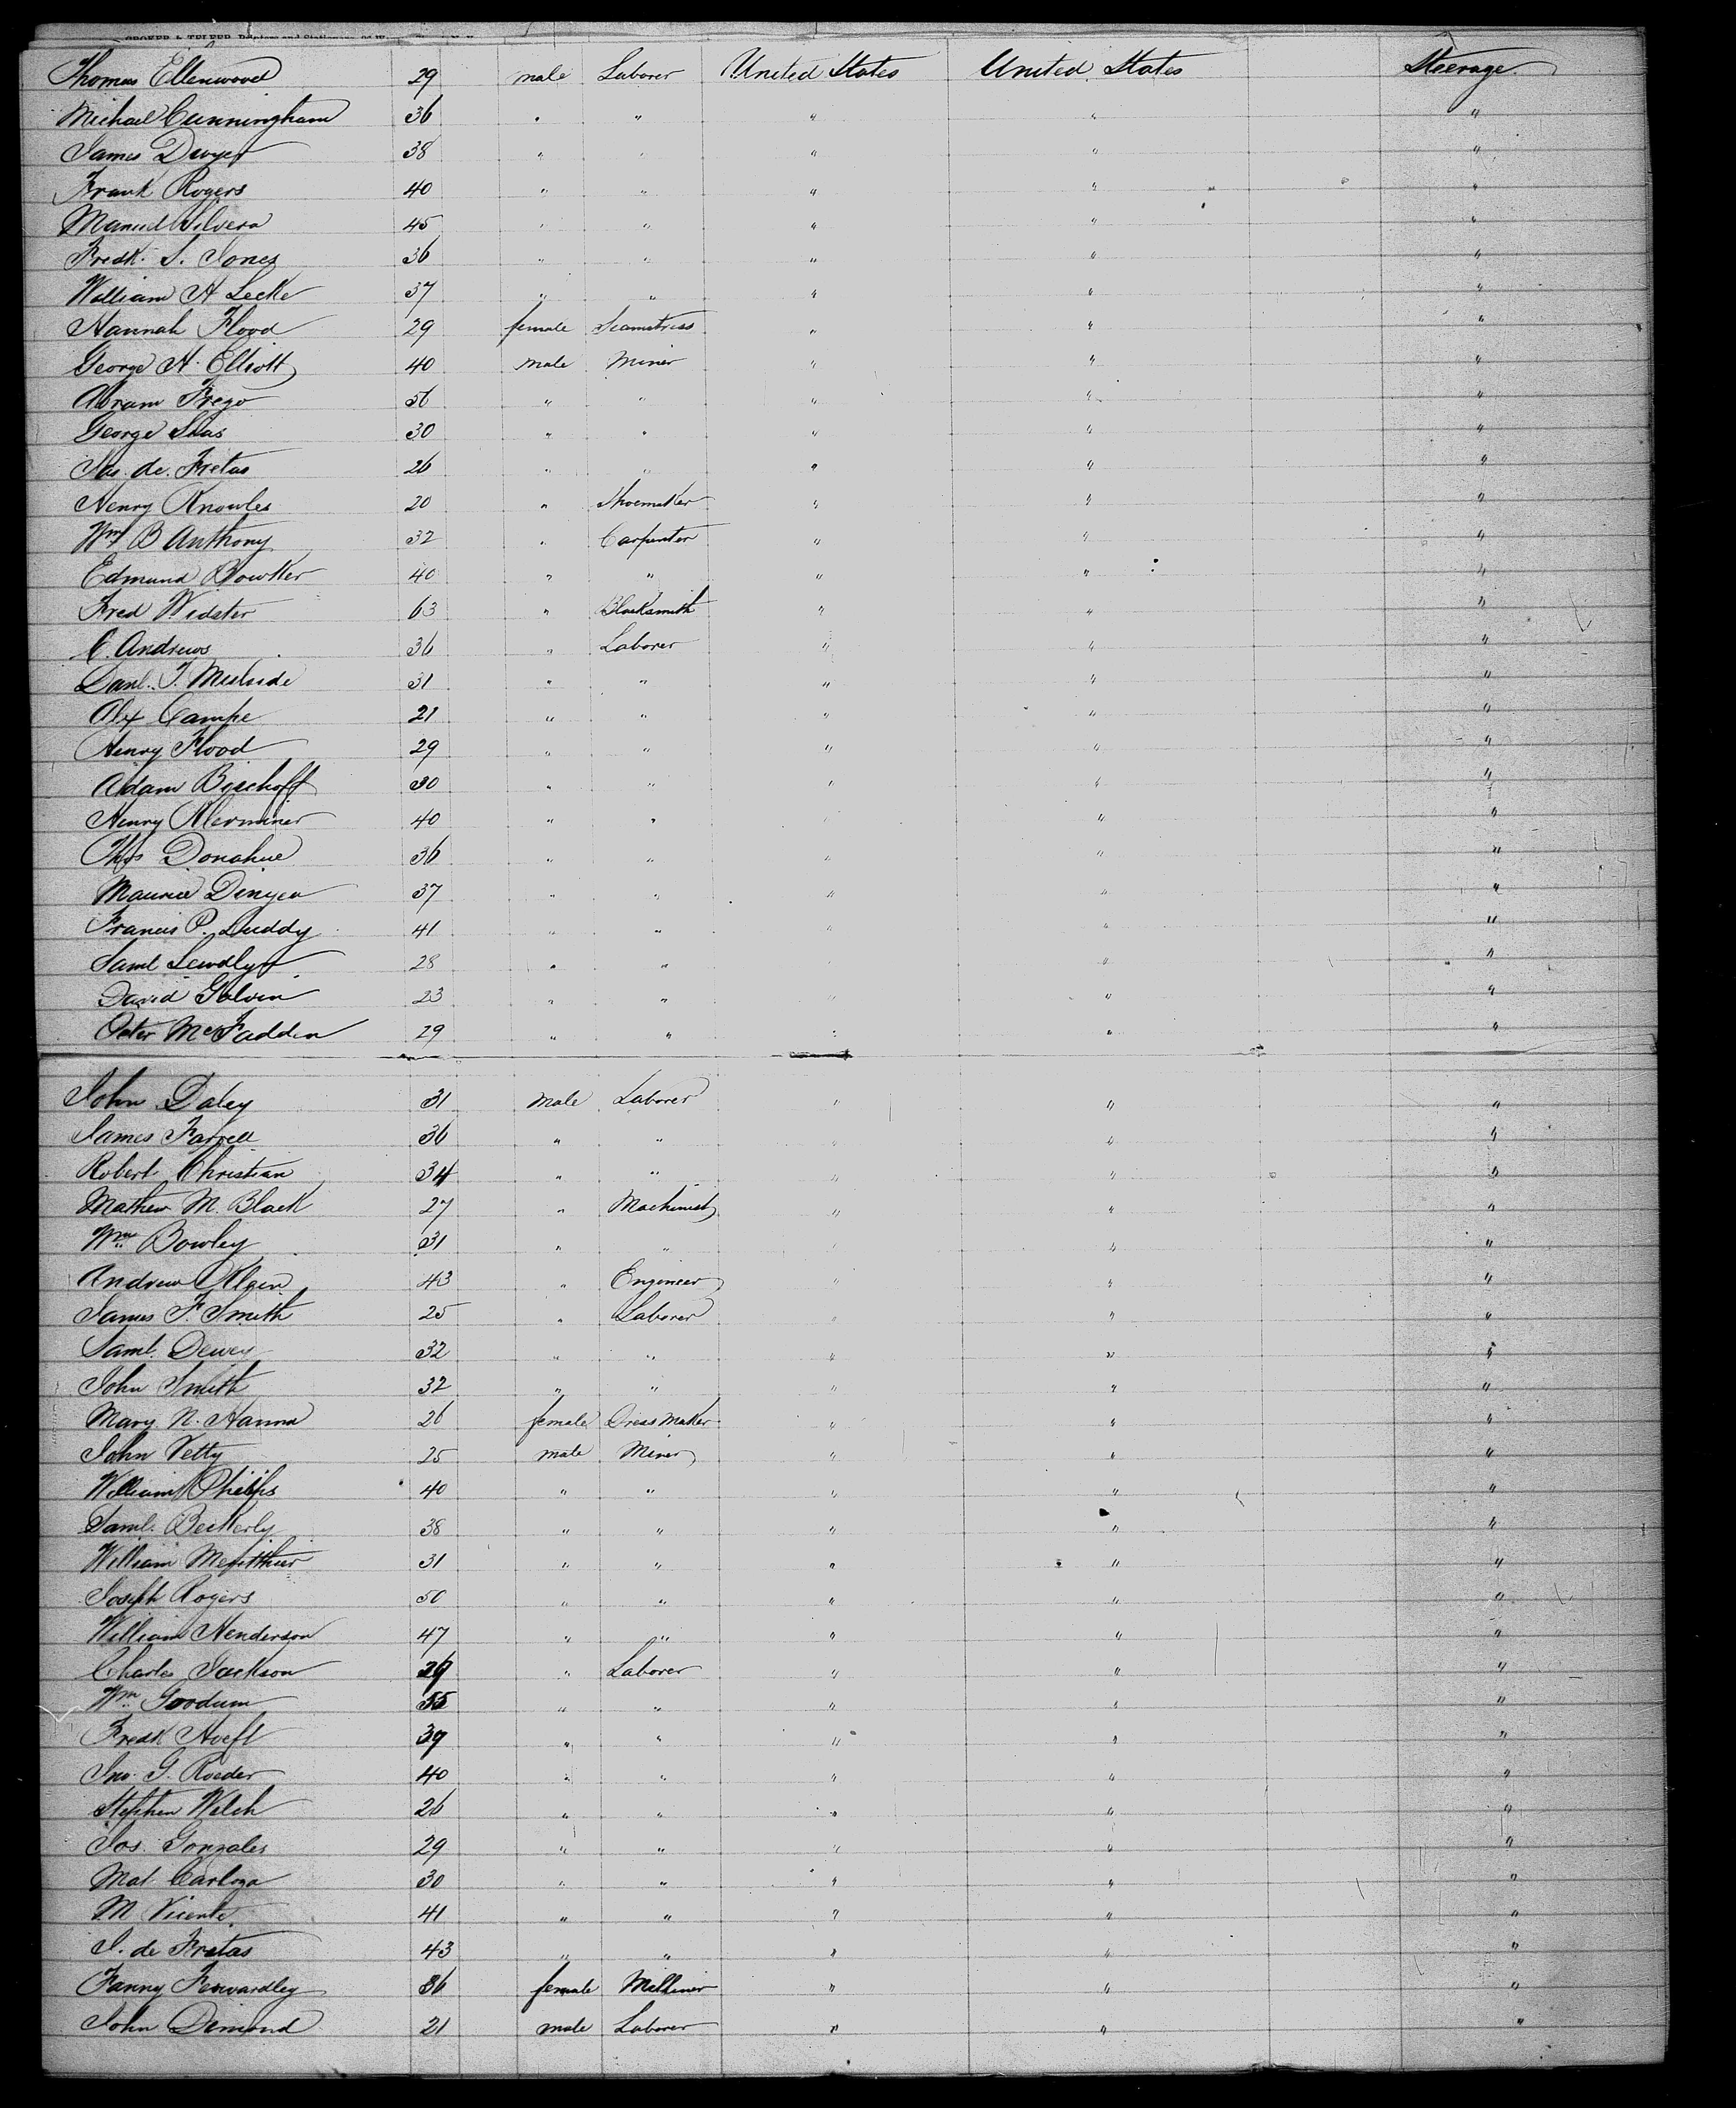 Thomas Ellenwood 29 male Laborer United States United States Steerage
Michael Cunningham 36 " " " " "
James Dwyer 38 " " " " "
Frank Rogers 40 " " " " "
Manuel Silvera 45 " " " " "
Fredk. S. Jones 36 " " " " "
William A Lecke 37 " " " " "
Hannah Flood 29 female Seamstress " " "
George H. Elliott 40 male Miner " " "
Abram Frego 56 " " " " "
George Silas 30 " " " " "
Jas. de. Fretas 26 " " " " "
Henry Knowles 20 " Shoemaker " " "
Wm B Anthony 32 " Carpenter " " "
Edmund Bowker 40 " " " " "
Fred Widster 63 " Blacksmith " " "
C. Andrews 36 " Laborer " " "
Danl. T. 31 " " " " "
Alex Campe 21 " " " " "
Henry Flood 29 " " " " "
Adam Bischoff 30 " " " " "
Henry 40 " " " "
Thos Donahue 36 " " " " "
Maurice 37 " " " " "
Francis P. Duddy 41 " " " " "
Saml 28 " " " "
David Galvin 23 " " " " "
Peter McFadden 29 " " " " "
John Daley 31 male Laborer " " "
James Farrell 36 " " " " "
Robert Christian 34 " " " " "
Mathew M. Black 27 " Machinist " " "
Wm Bowley 31 " " " "
Andrew Klein 43 " Engineer " " "
James F. Smith 25 " Laborer " " "
Saml. Dewey 32 " " " " "
John Smith 32 " " " " "
Mary N. Hanna 26 female Dress Maker " " "
John Vetty 25 male Miner " " "
William Philips 40 " " " " "
Saml. Beckerly 38 " " " " "
William 31 " " " " "
Joseph Rogers 50 " " " " "
William Henderson 47 " " " " "
Charles Jackson 29 " Laborer " " "
Wm Goodum 35 " " " " "
Fredk Hoeft 39 " " " " "
Jno. G. Roeder 40 " " " " "
Stephen Welch 26 " " " " "
Jos. Gonzales 29 " " " " "
Mat. Carloga 30 " " " " "
M Vicente 41 " " " " "
J. de Fretas 43 " " " " "
Fanny 36 female Milliner " " "
John Dimond 21 male Laborer " " "